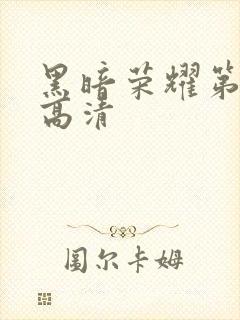 黑暗荣耀第
高清
圖尔卡姆